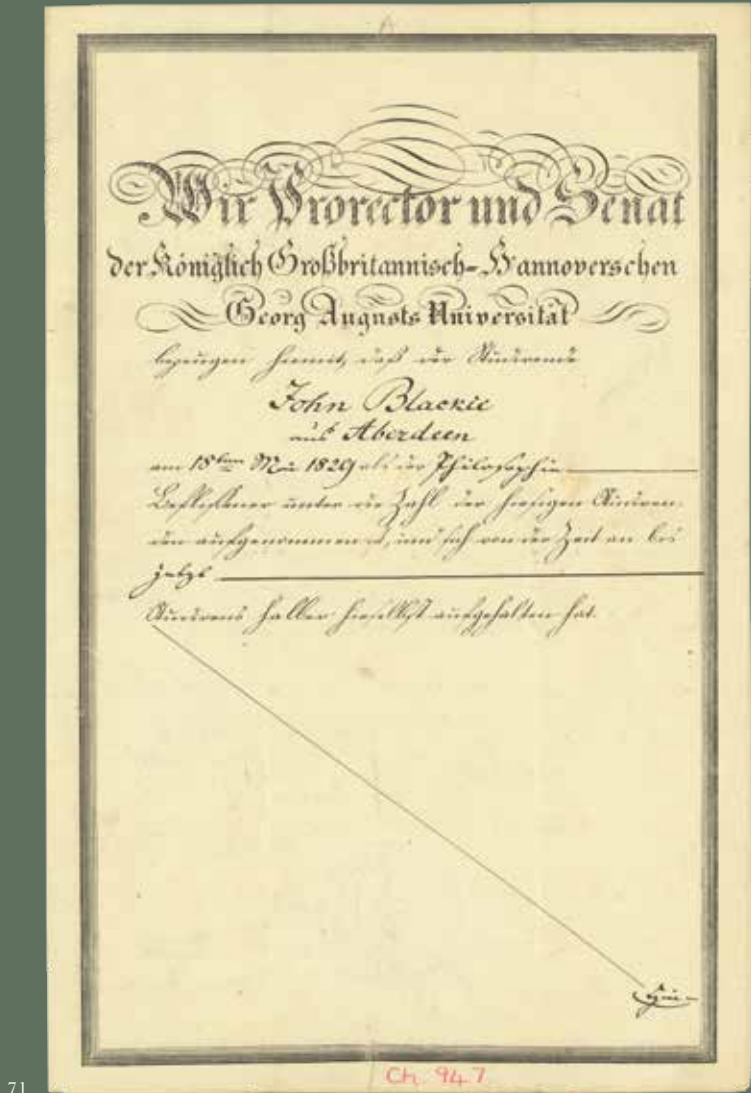 A
Wir Prorector und Senat
der Königlich Großbritannisch-Hannoverschen
Georg Augusts Universität
bezeugen hiemit, daß der Studirende
John Blackie
aus Aberdeen
am 18ten Mai 1829 als der Philosophie
Beflissener unter die Zahl der hiesigen Studiren-
den aufgenommen ist, und sich von der Zeit an bis
jetzt
Studirens halber hieselbst aufgehalten hat.
Ch. 947
71